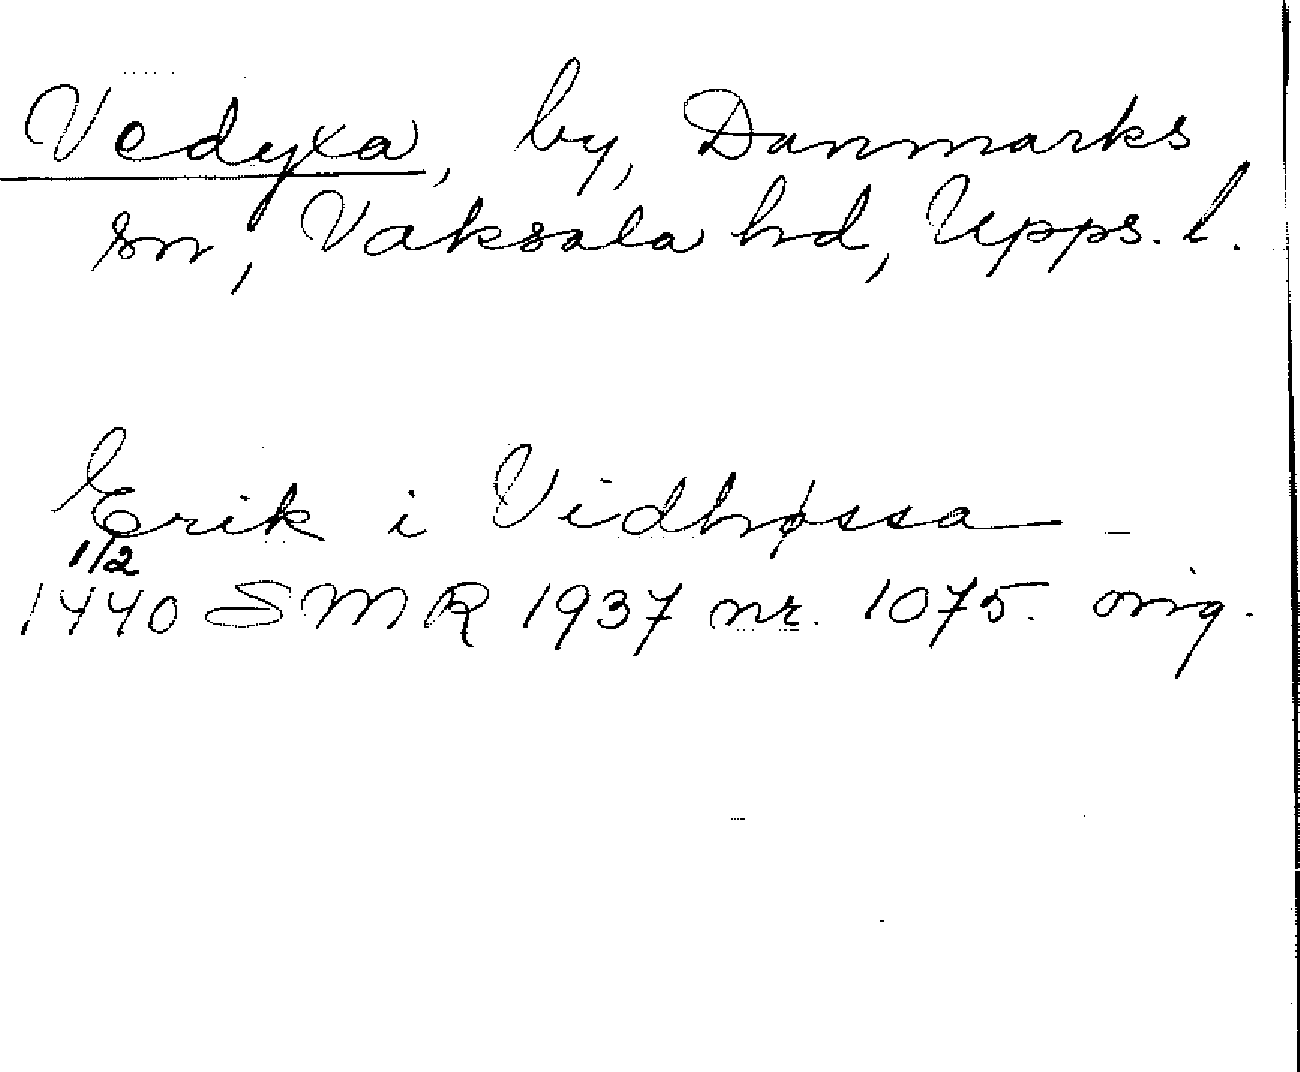 Vedyxa, by, Danmarks
sn, Vaksala hd, Upps. l.
Erik i Vidhøssa
1/2
1440 SMR 1937 nr. 1075. orig.